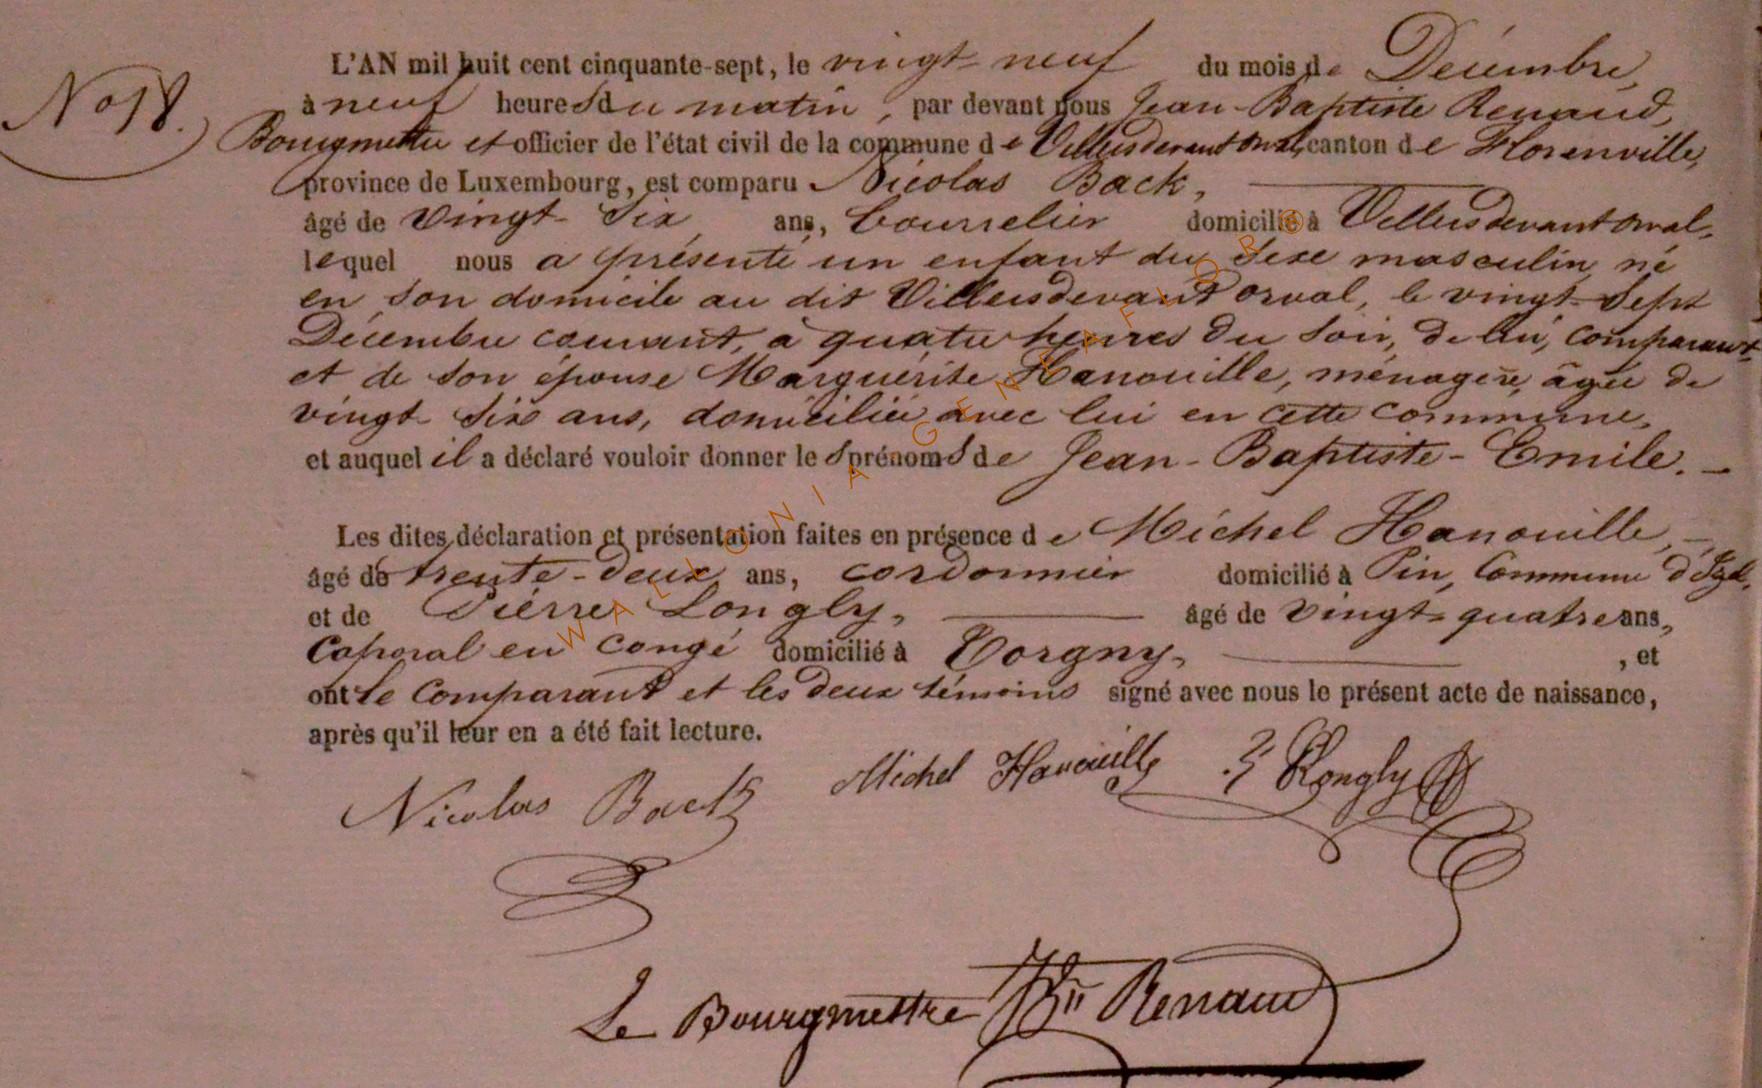 No 18.
L'AN mil huit cent cinquante-sept, le vingt-neuf du mois de Décembre,
à neuf heures du matin, par devant nous Jean-Baptiste Renaud,
Bourgmettre et officier de l'état civil de la commune de Villersdevantorval, canton de Florenville,
province de Luxembourg, est comparu Nicolas Back,
âgé de vingt-six ans, bourrelier domicilié à Villersdevantorval,
lequel nous a présenté un enfant du sexe masculin, né
en son domicile au dit Villersdevant orval, le vingt-sept
Décembre courant, à quatre heures du soir, de lui, comparant
et de son épouse Marguérite Hanouille, ménagère, âgée de
vingt-six ans, domiciliée avec lui en cette commune,
et auquel il a déclaré vouloir donner les prénoms de Jean-Baptiste-Emile.
Les dites déclaration et présentation faites en présence de Michel Hanouille,
âgé de trente-deux ans, cordonnier domicilié à Pin, Commune d'Izel,
et de Piérre Longly, âgé de vingt-quatre ans,
Caporal en congé domicilié à Torgny, , et
ont le comparant et les deux témoins signé avec nous le présent acte de naissance,
après qu'il leur en a été fait lecture.
Nicolas Back Michel Hanouille Longly
Le Bourgmettre JBte Renaud
WALLONIA GENEAFLOR®